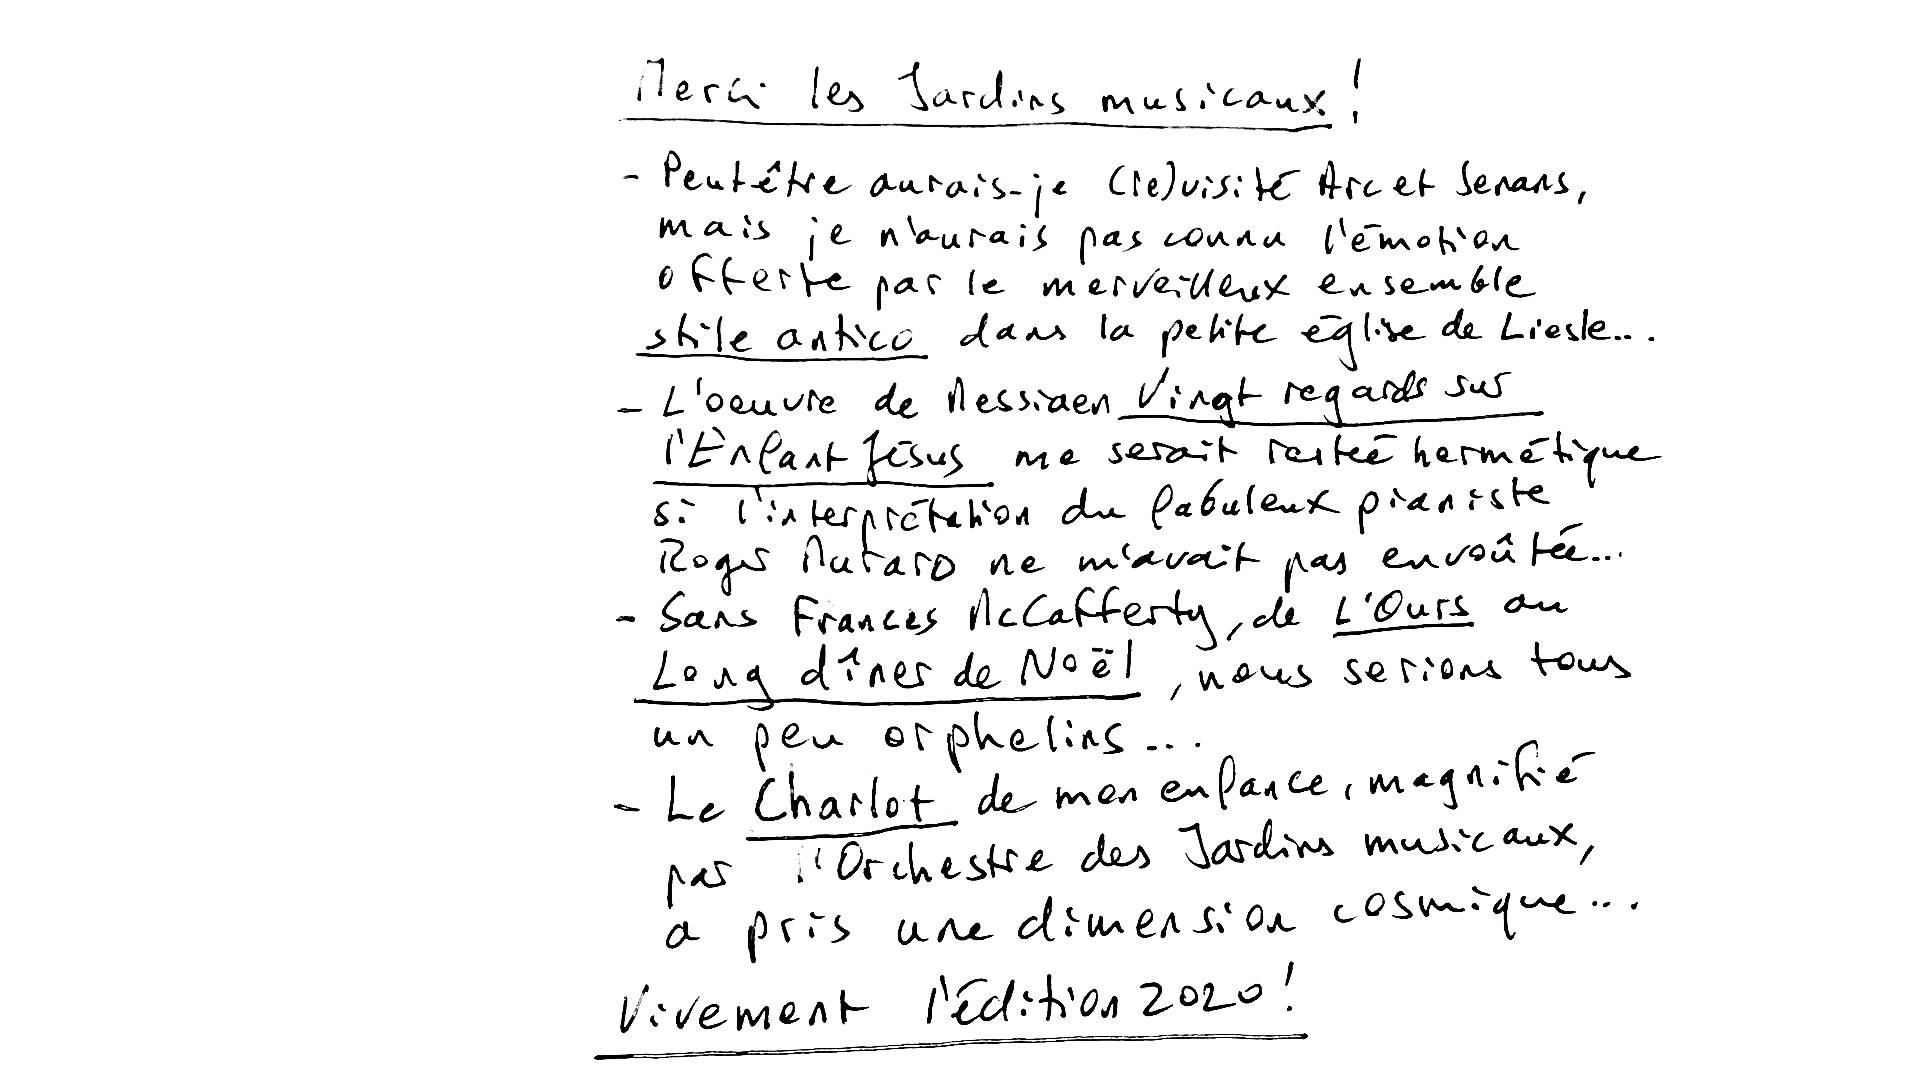 Merci les Jardins musicaux !
- Peut être aurais-je (re)visité Arc et Senans,
mais je n'aurais pas connu l'émotion
offerte par le merveilleux ensemble
stile antico dans la petite église de Liesle...
- L'oeuvre de Messiaen Vingt regards sur
l'Enfant Jésus me serait restée hermétique
si l'interprétation du fabuleux pianiste
Roger Muraro ne m'avait pas envoûtée...
- Sans Frances McCafferty, de L'Ours au
Long dîner de Noël, nous serions tous
un peu orphelins...
- Le Charlot de mon enfance, magnifié
par l'Orchestre des Jardins musicaux,
a pris une dimension cosmique...
Vivement l'édition 2020 !